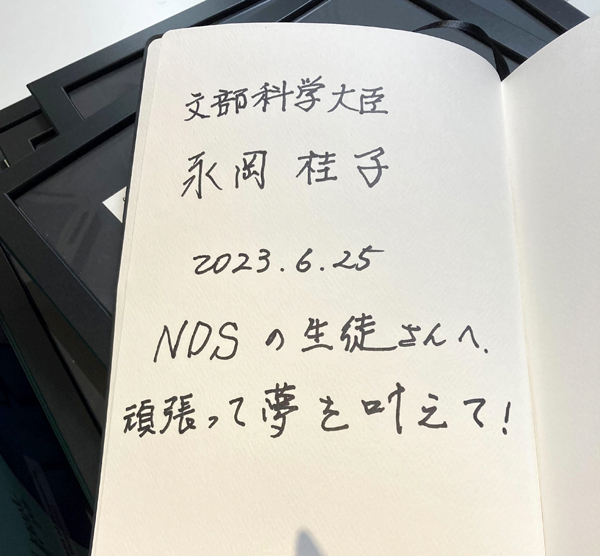 文部科学大臣
永岡 桂子
2023.6.25
NDSの生徒さんへ.
頑張って夢を叶えて!